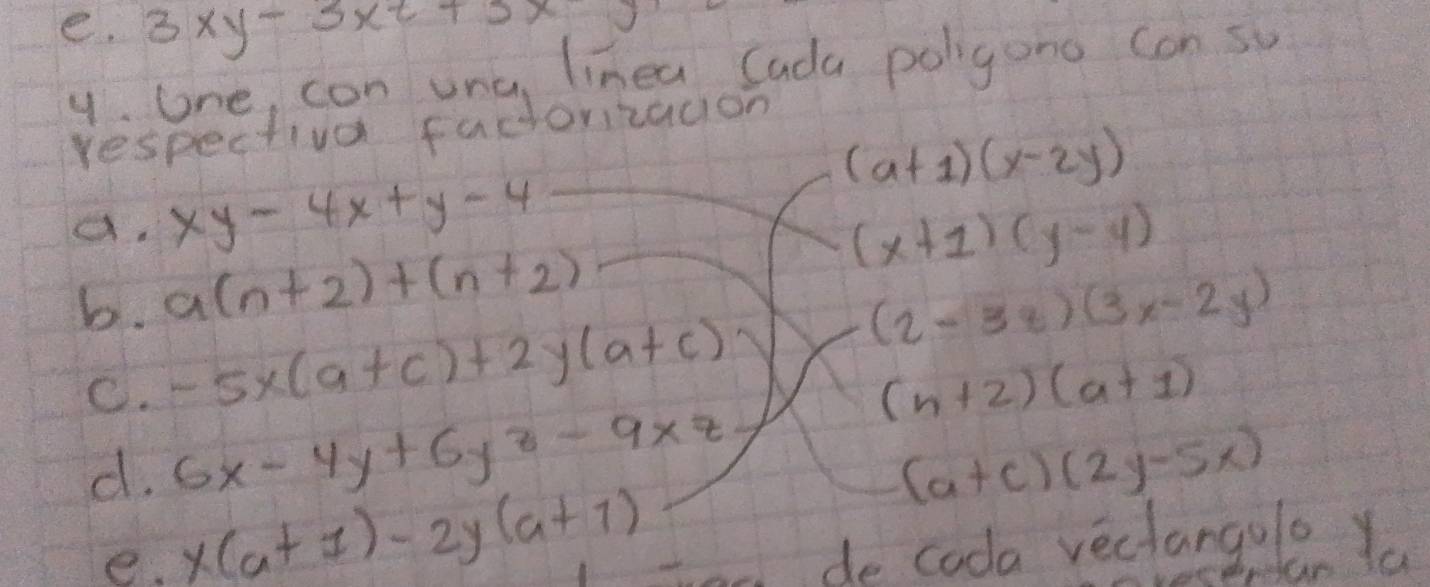 e. 3xy - 3xz + 3x
4. Une, con una línea cada poligono con su
respectiva factorización
a. xy - 4x + y - 4
(a+1)(x-2y)
b. a(n+2)+(n+2)
(x+1)(y-4)
c. -5x(a+c)+2y(a+c)
(2-3z)(3x-2y)
d. 6x - 4y + 6yz - 9xz
(n+2)(a+1)
e. x(a+1)-2y(a+1)
(a+c)(2y-5x)
de cada réctangulo y
la